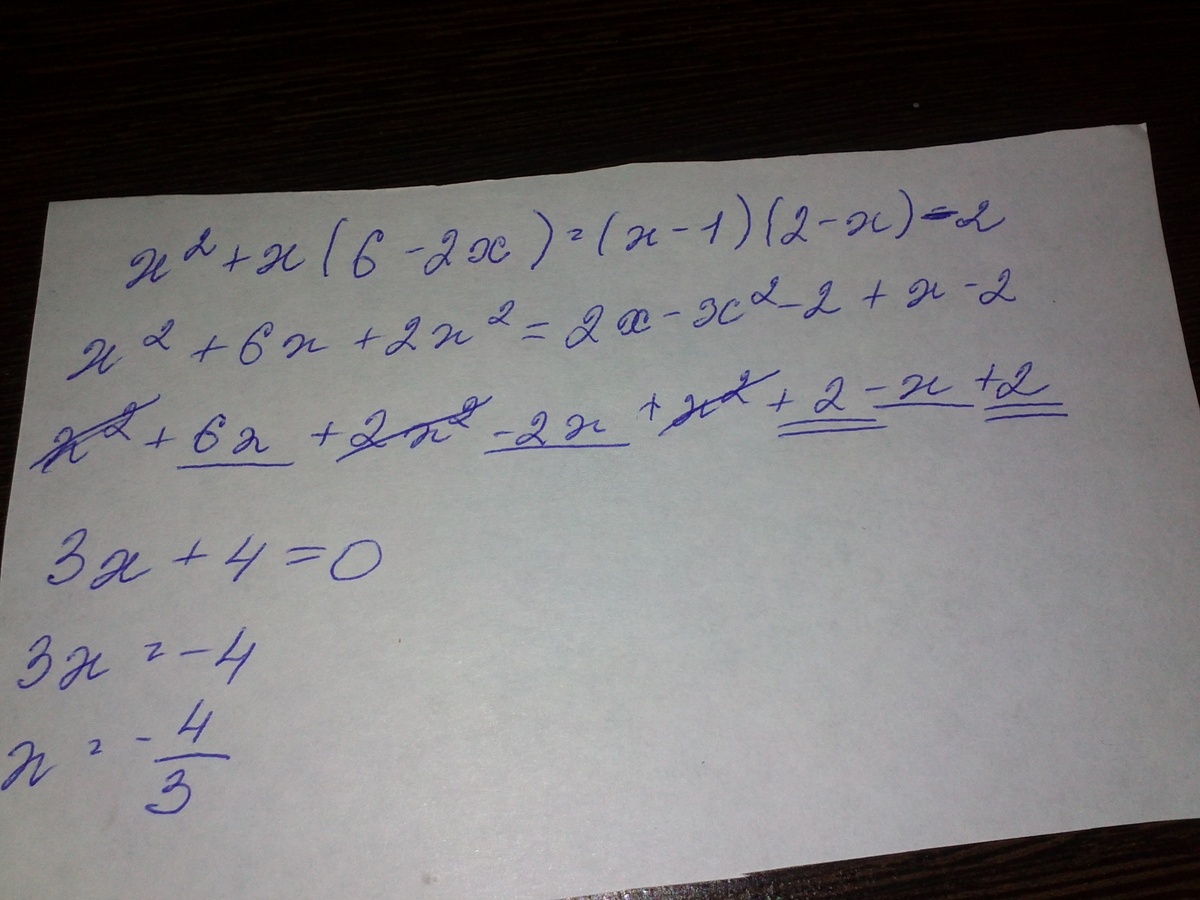 x² + x(6 - 2x) = (x - 1)(2 - x) - 2
x² + 6x + 2x² = 2x - x² - 2 + x - 2
x² + 6x + 2x² - 2x + x² + 2 - x + 2
3x + 4 = 0
3x = -4
x = - 4/3